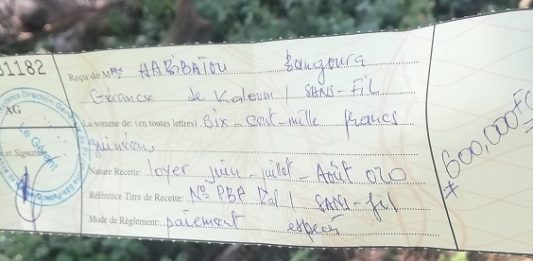 31182
Reçu de Mme HABIBAÏOU Bangoura
Gérance de Kaloum / SANS-FIL
La somme de: (en toutes lettres) Six-cent-mille francs
guinéen,
Nature Recette: loyer juin-juillet-Août 020
Référence Titre de Recette: N° PBP Kal / SANS-fil
Mode de Règlement: paiement espèce
AG
et Signature
Le Gérant
600,000